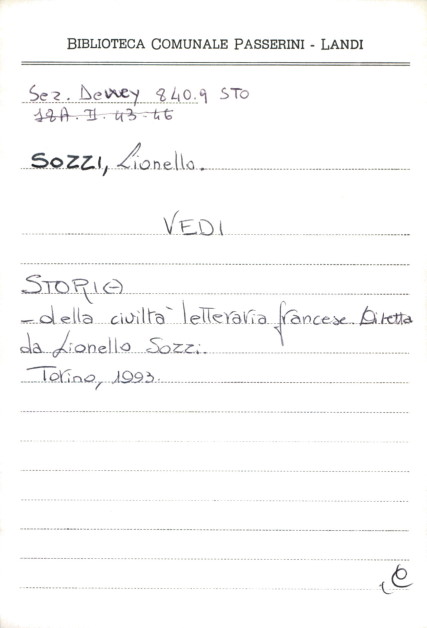 BIBLIOTECA COMUNALE PASSERINI - LANDI
Sez. Dewey 840.9 STO
18A. II. 43-46
SOZZI, Lionello.
VEDI
STORIA
- della civiltà letteraria francese. Diretta
da Lionello Sozzi.
Torino, 1993.